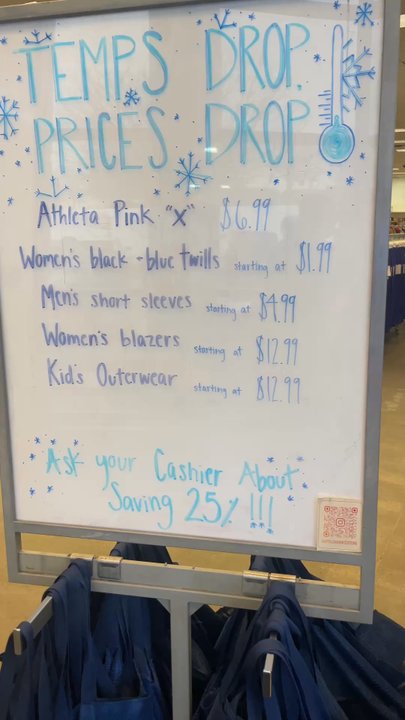 TEMPS DROP,
PRICES DROP
Athleta Pink "X" $6.99
Women's black + blue twills starting at $1.99
Men's short sleeves starting at $4.99
Women's blazers starting at $12.99
Kid's Outerwear starting at $12.99
Ask your Cashier About
Saving 25% !!!